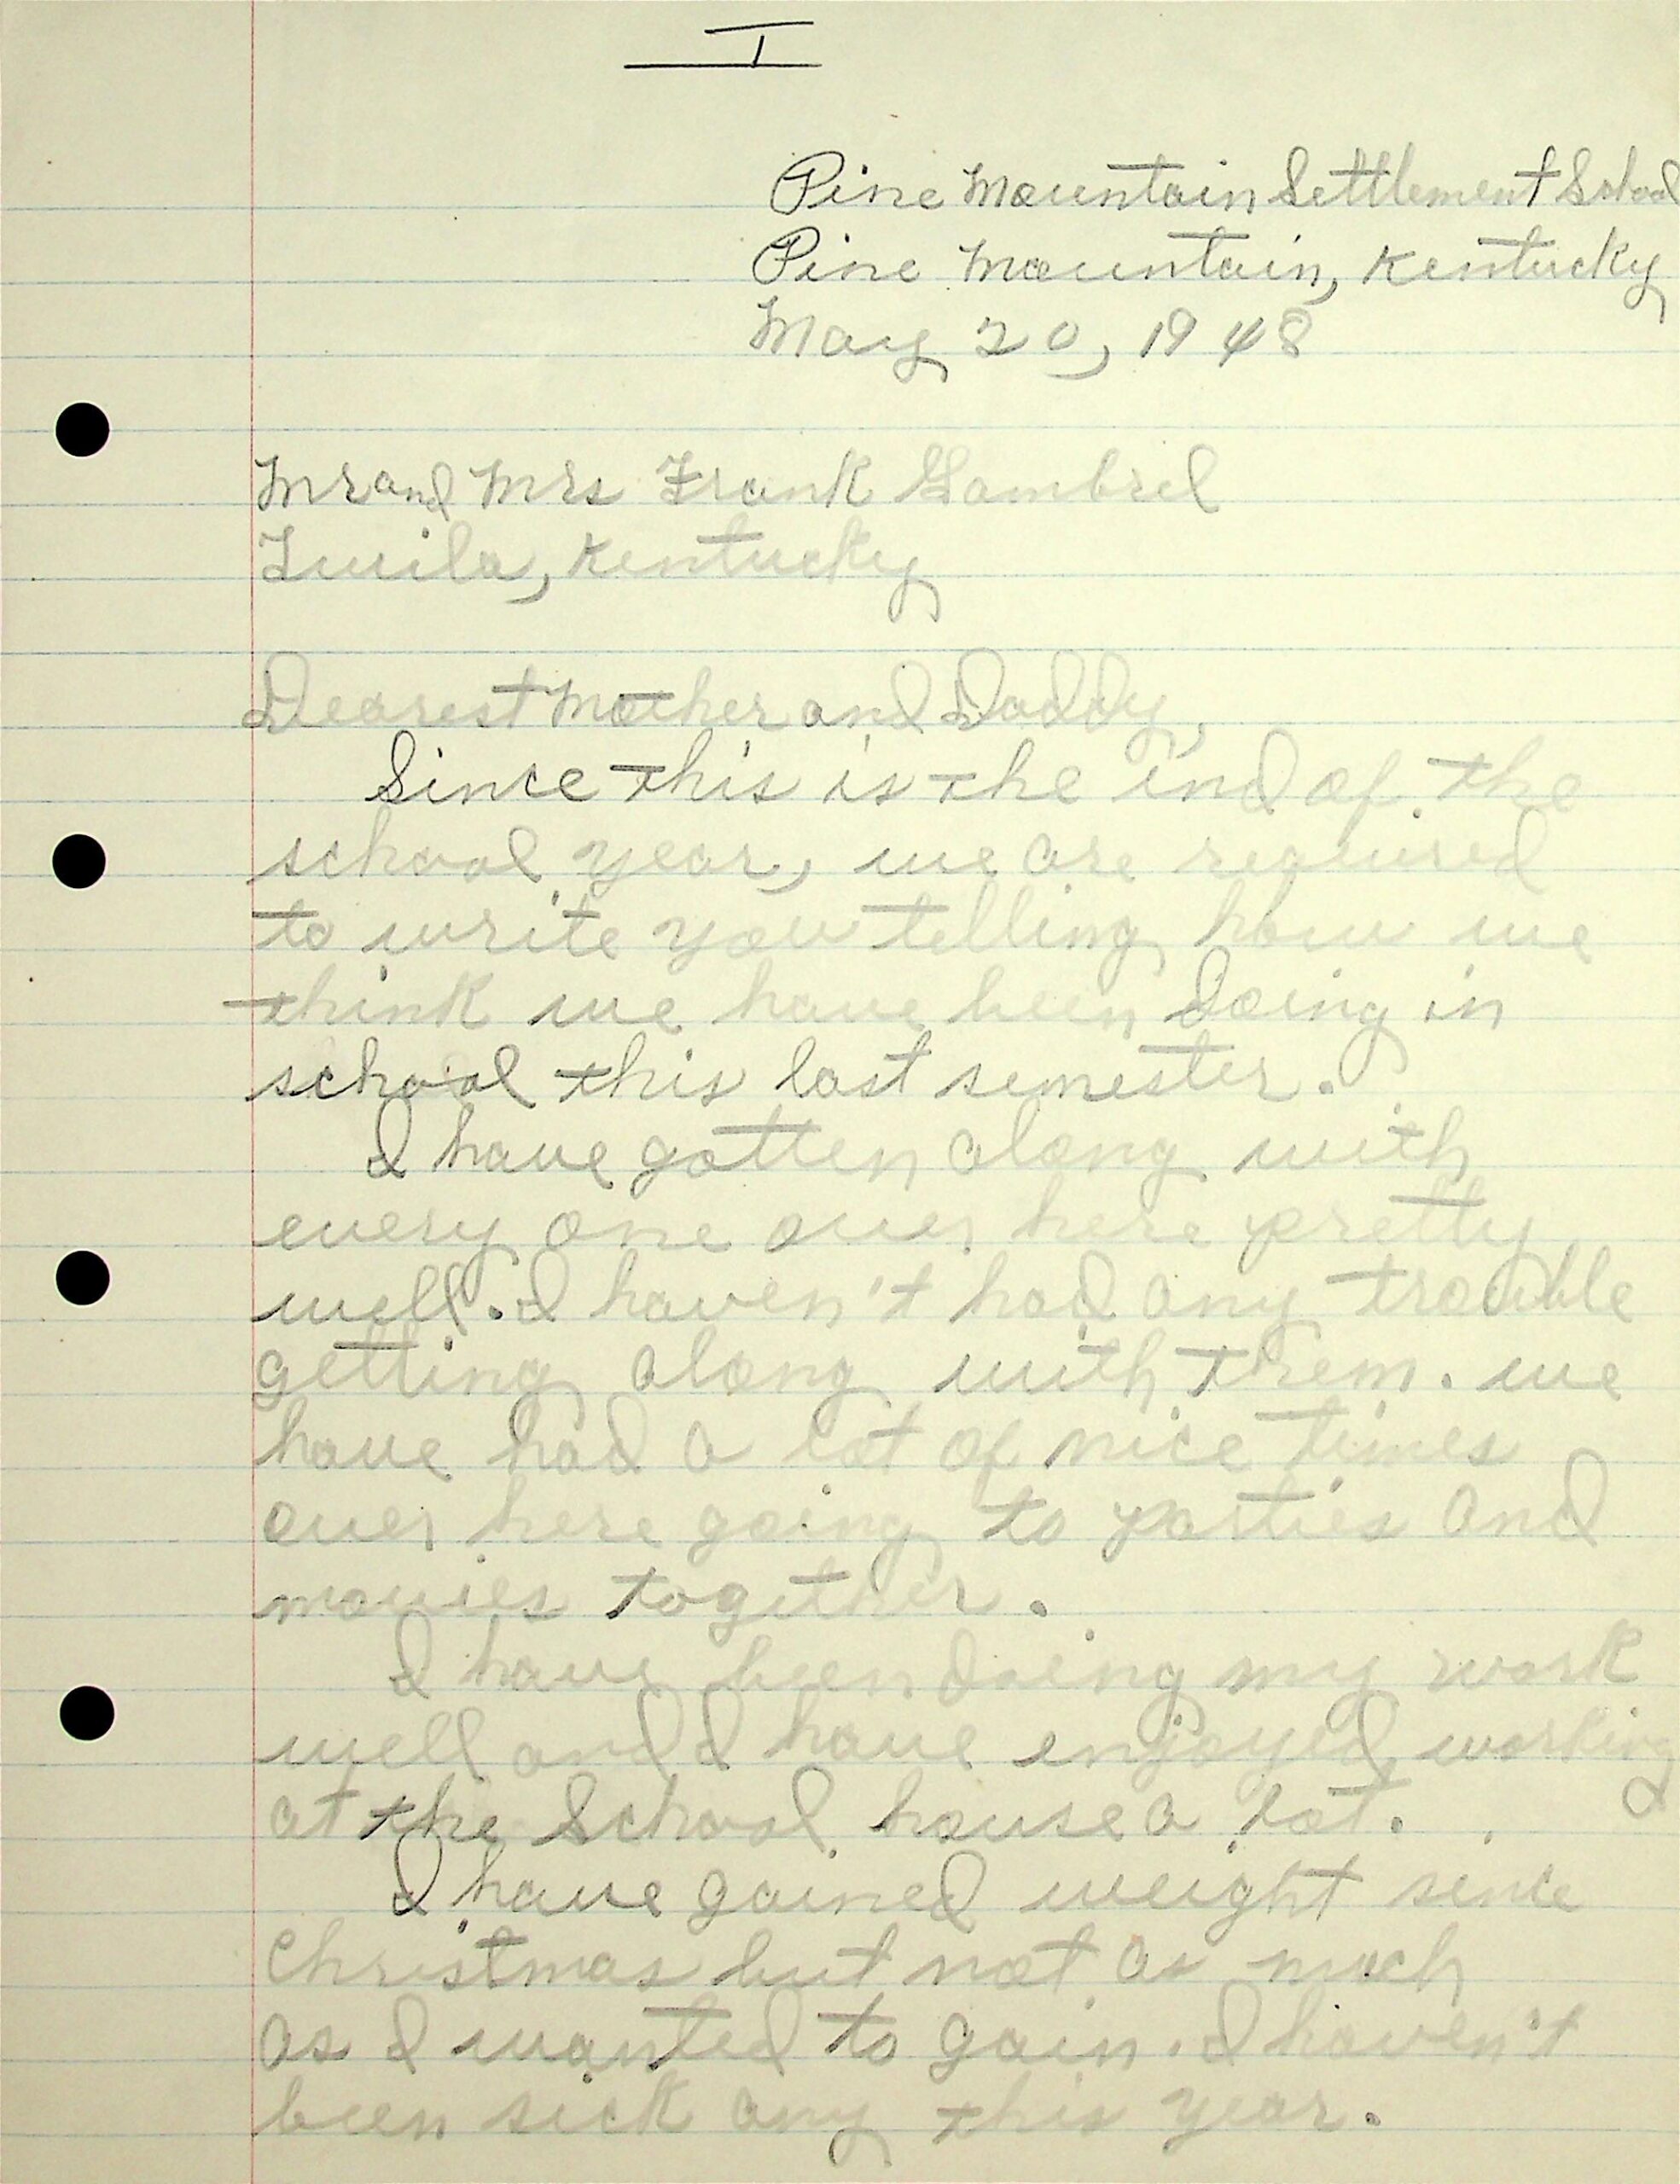 I
Pine Mountain Settlement School
Pine Mountain, Kentucky
May 20, 1948
Mr and Mrs Frank Gambrel
Twila, Kentucky
Dearest Mother and Daddy,
Since this is the end of the
school year, we are required
to write you telling how we
think we have been doing in
school this last semester.
I have gotten along with
every one over here pretty
well. I haven't had any trouble
getting along with them. we
have had a lot of nice times
over here going to parties and
movies together.
I have been doing my work
well and I have enjoyed working
at the School house a lot.
I have gained weight since
Christmas but not as much
as I wanted to gain. I haven't
been sick any this year.